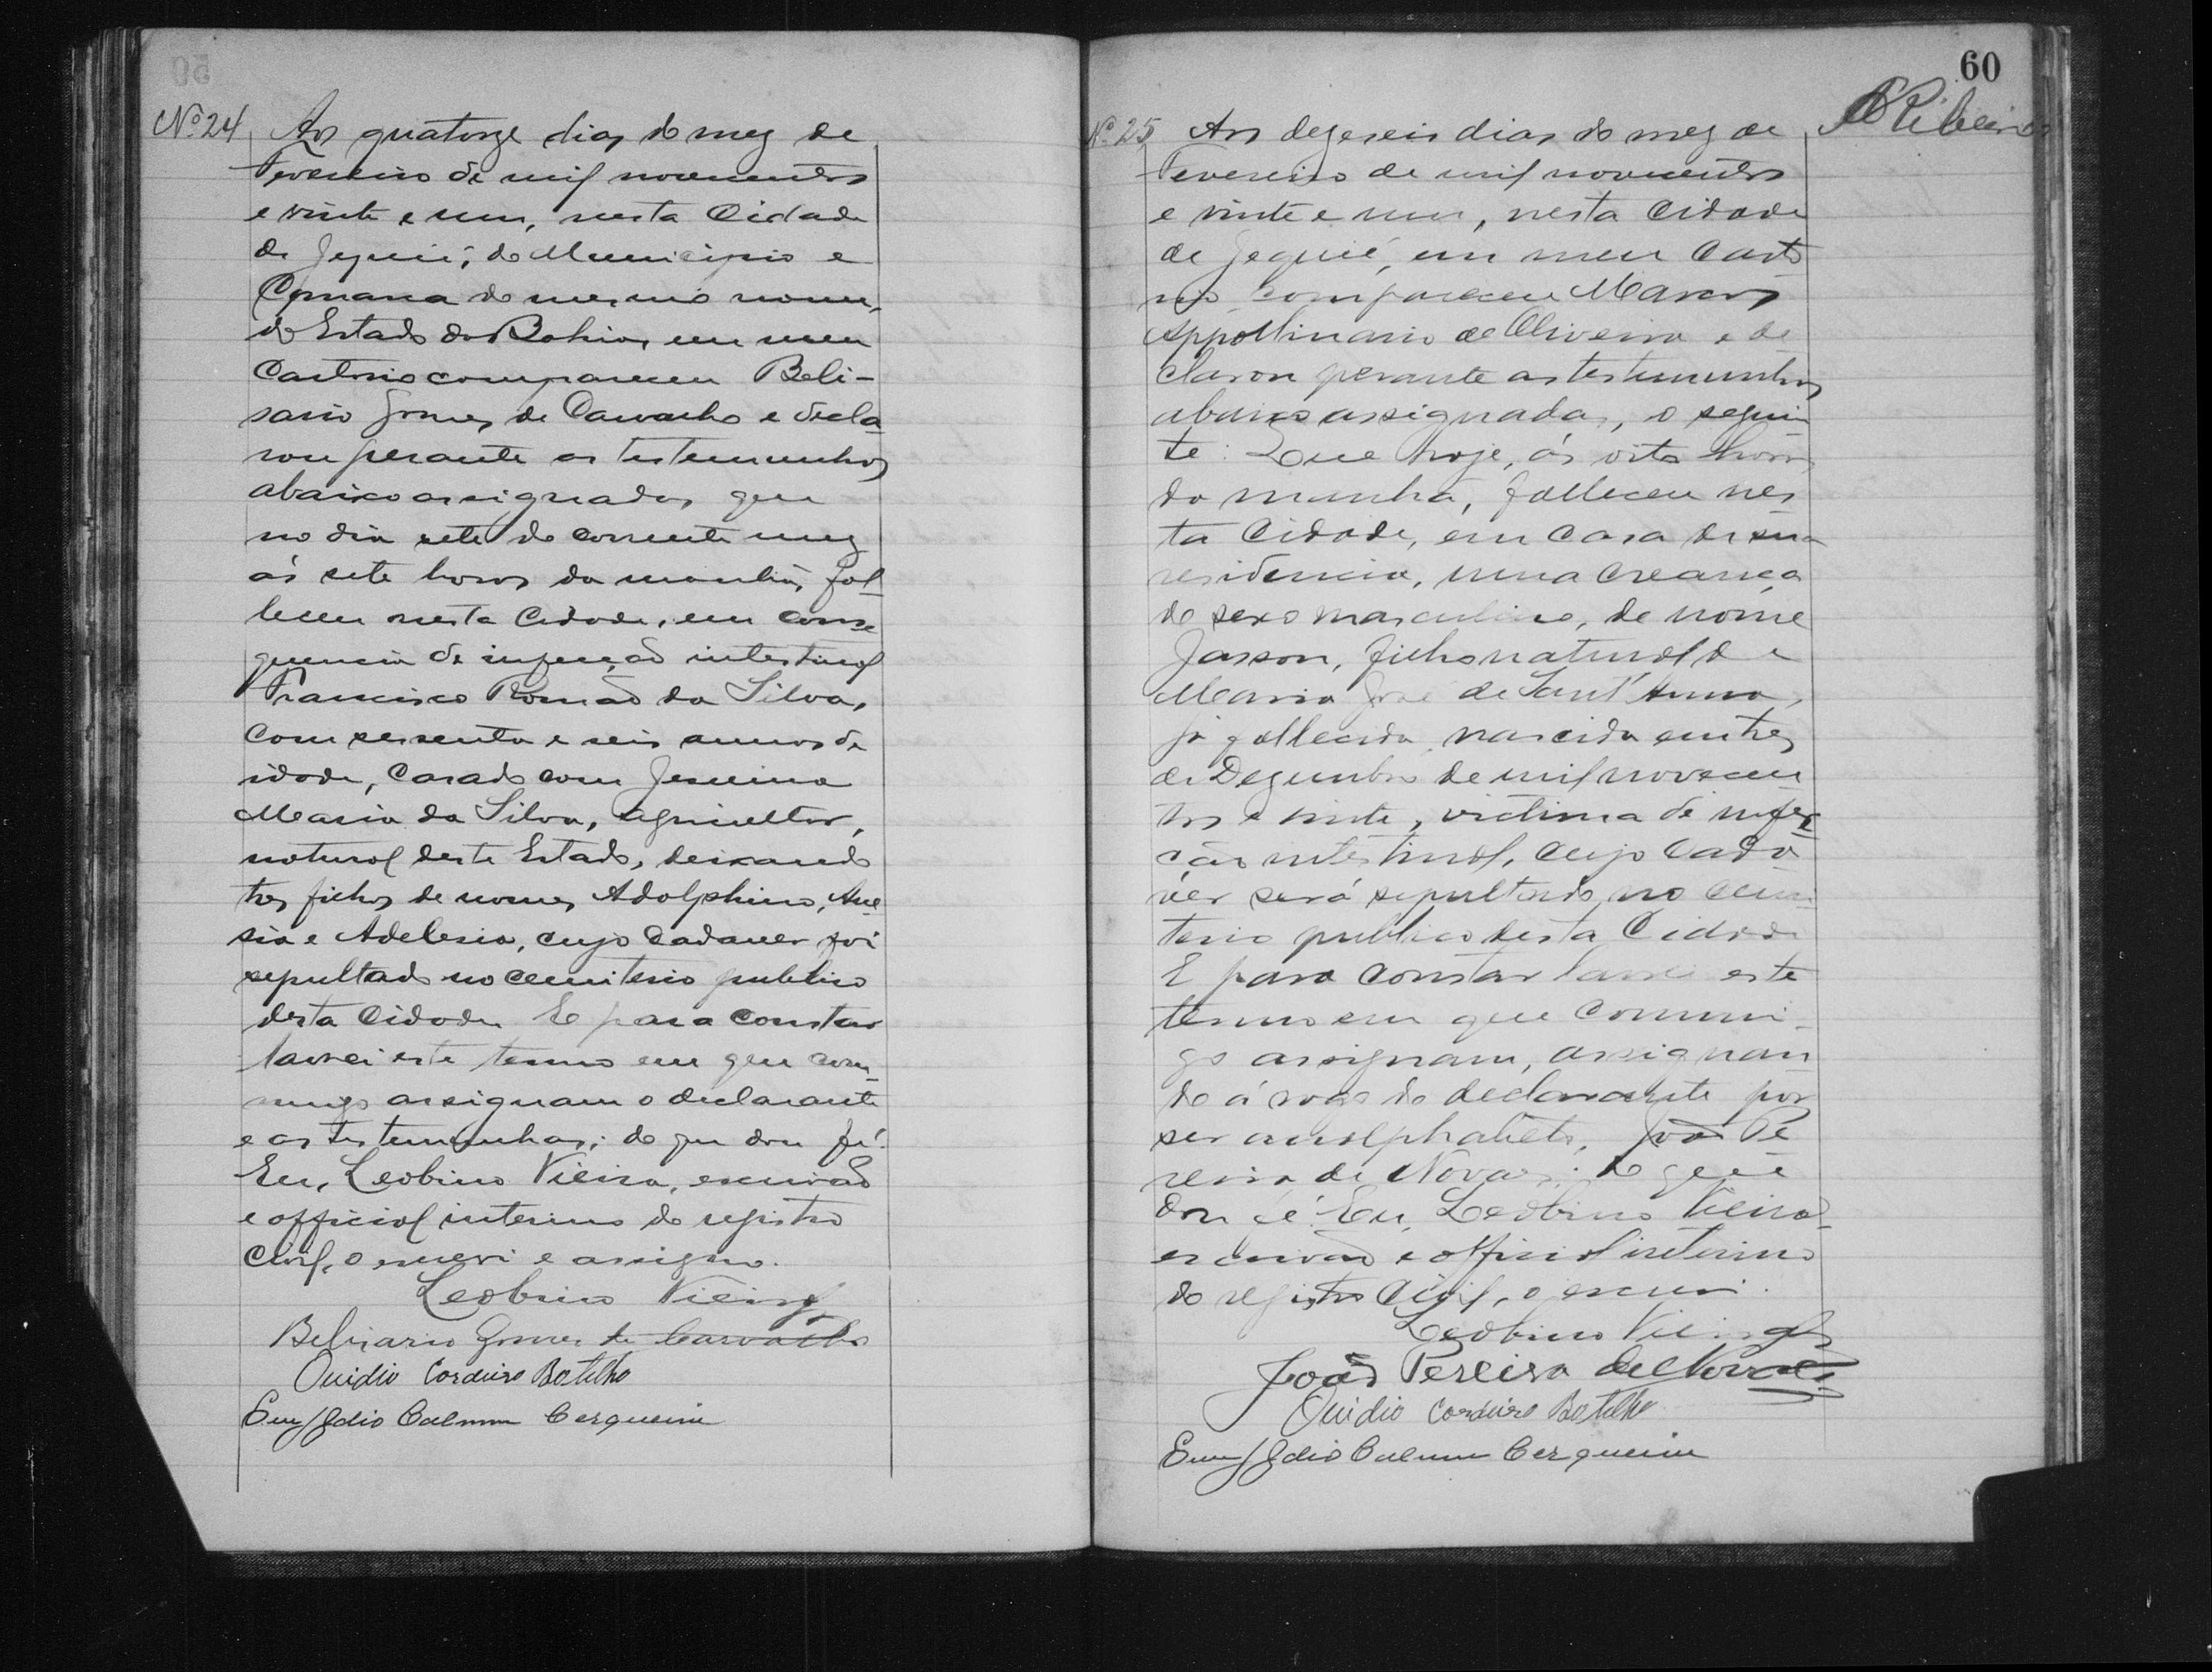 Nº 24
Aos quatorze dias do mez de
Fevereiro de mil novecentos
e vinte e um, nesta Cidade
de Jequié, do Municipio e
Comarca do mesmo nome,
do Estado da Bahia, em meu
Cartorio compareceu Beli-
sario Gomes de Carvalho e decla
rou perante as testemunhas
abaixo assignadas, que
no dia sete do corrente mez
ás sete horas da manhã, fal
leceu nesta Cidade, em conse
quencia de infecção intestinal
Francisco Romão da Silva,
com sessenta e seis annos de
idade, casado com Jesuina
Maria da Silva, agricultor,
natural deste Estado, deixando
tres filhos de nomes Adolphino,
e Adelesia, cujo cadaver foi
sepultado no cemiterio publico
desta Cidade. E para constar
lavrei este termo em que com-
migo assignam o declarante
e as testemunhas; do que dou fé.
Eu, Leobino Vieira, escrivão
e official interino do registro
Civil, o escrevi e assigno.
Leobino Vieira
Belisario Gomes de Carvalho
Ouidio Cordeiro Botelho
Emygdio Calmon Cerqueira
60
Ribeiro
Nº 25
Aos dezeseis dias do mez de
Fevereiro de mil novecentos
e vinte e um, nesta Cidade
de Jequié, em meu Carto
rio compareceu Marcos
Appollinario de Oliveira e de
clarou perante as testemunhas
abaixo assignadas, o seguin
te: Que hoje, ás oito horas
da manhã, falleceu nes
ta Cidade, em casa de sua
residencia, uma creança
do sexo masculino, de nome
Jasson, filho natural de
Maria José de Sant'Anna,
já fallecida, nascida em tres
de Dezembro de mil novecen
tos e vinte, victima de infec
ção intestinal, cujo cada
ver será sepultado no cemi
terio publico desta Cidade
E para constar lavrei este
termo em que commi-
go assignam, assignan
do á rogo do declarante por
ser analphabeto, João Pe
reira de Novaes; do que
dou fé. Eu, Leobino Vieira
escrivão e official interino
do registro Civil, o escrevi.
Leobino Vieira
João Pereira de Novaes
Ouidio Cordeiro Botelho
Emygdio Calmon Cerqueira